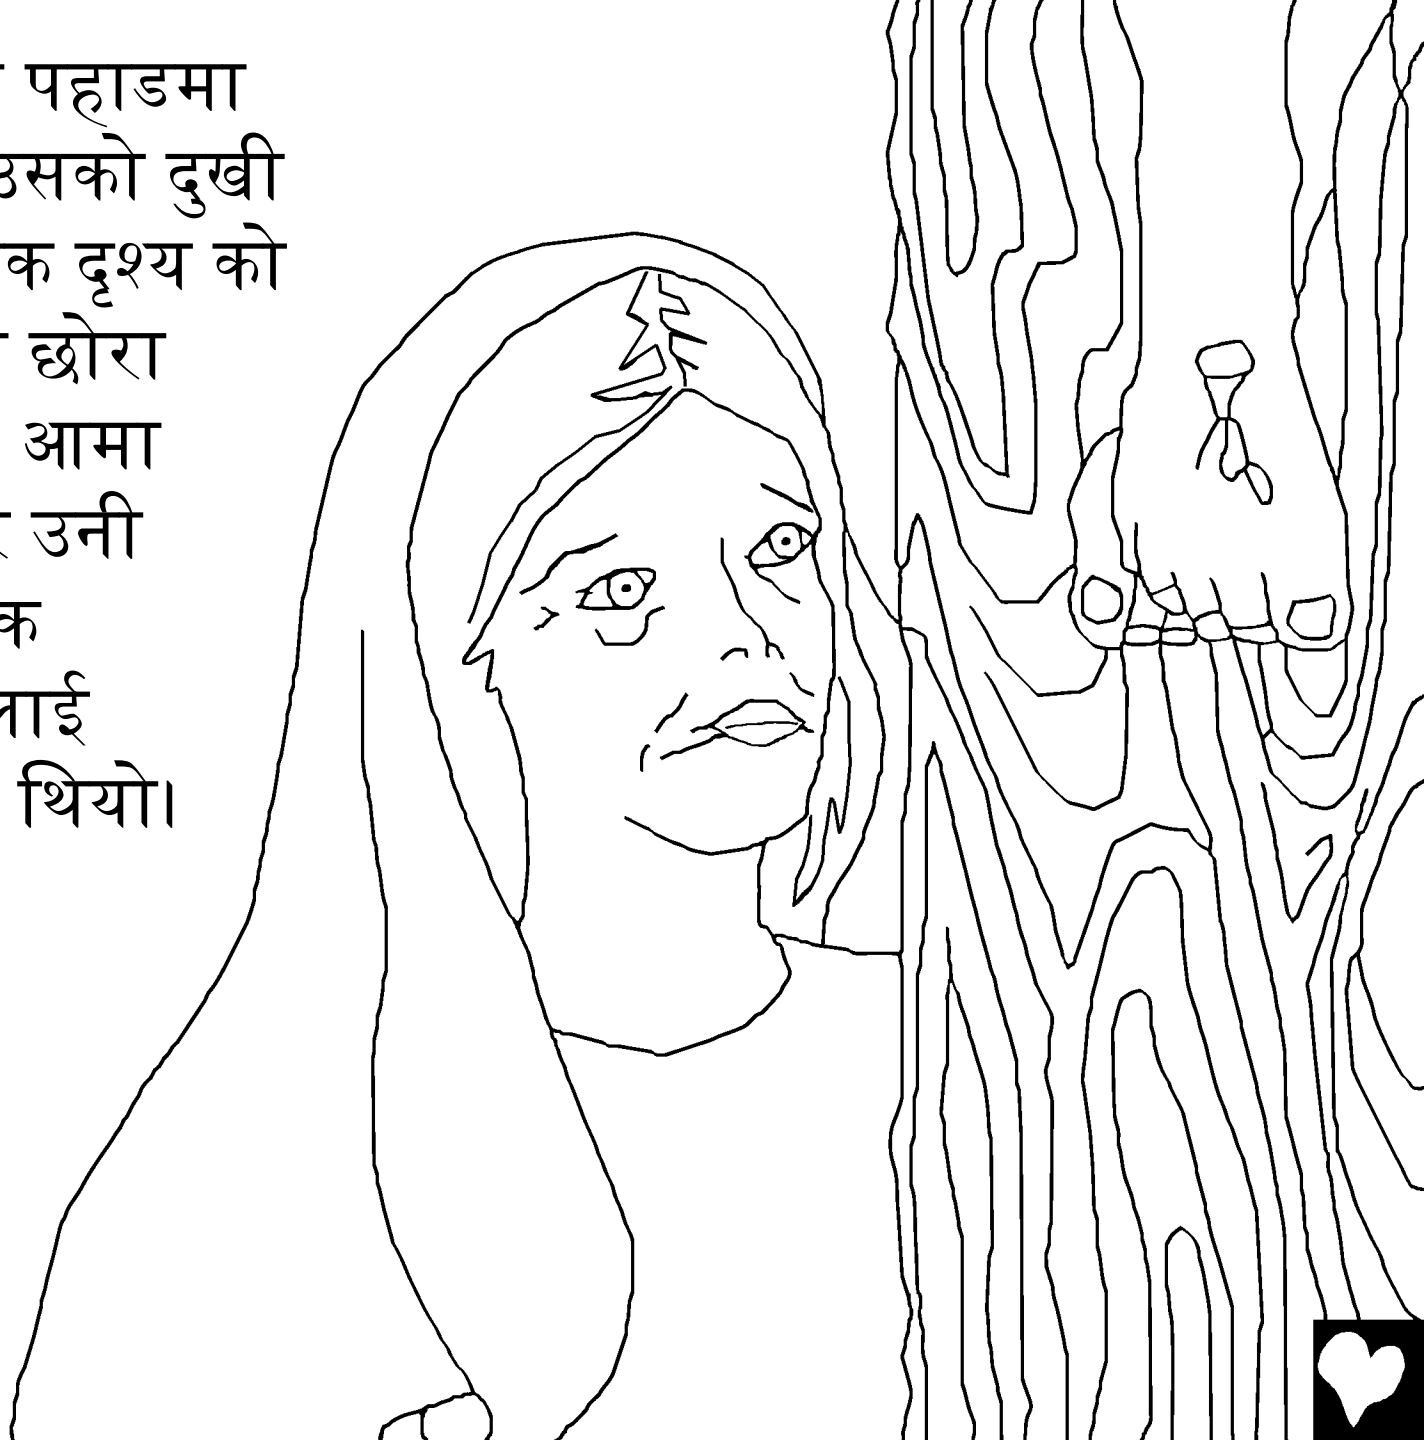 पहाडमा
उसको दुखी
दृश्य को
छोरा
आमा
उनी
थियो।